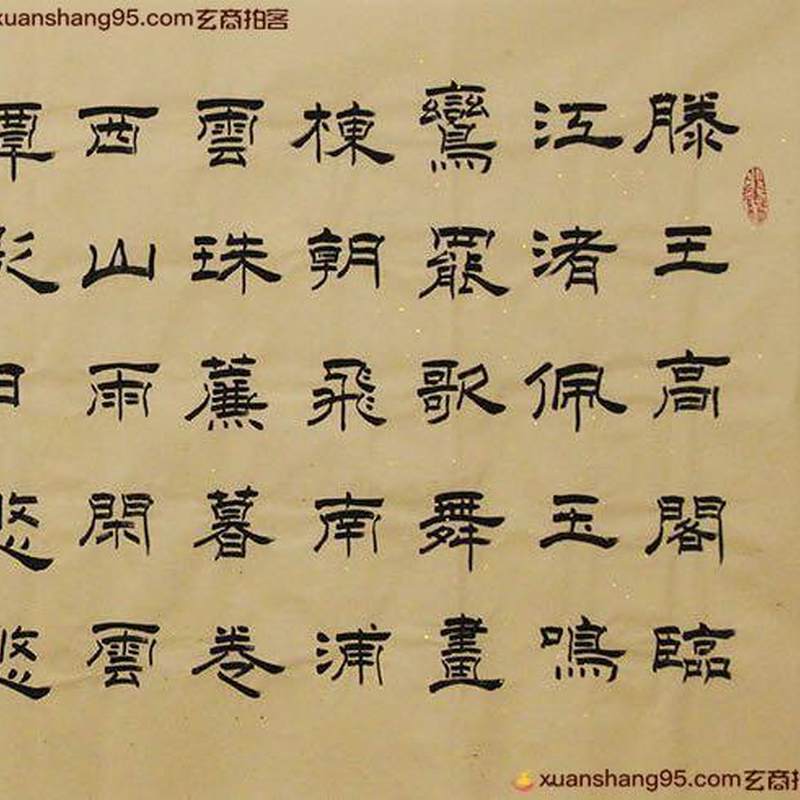 xuanshang95.com玄商拍客
滕王高閣臨
江渚佩玉鳴
鸞罷歌舞畫
棟朝飛南浦
雲珠簾暮卷
西山雨閑雲
潭影日悠悠
xuanshang95.com玄商拍